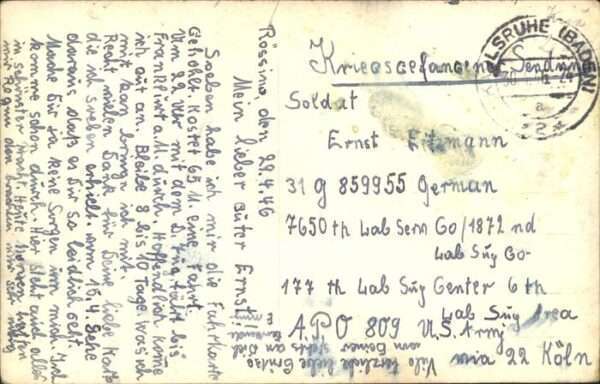 KARLSRUHE (BADEN)
Kriegsgefangenen Sendung
Soldat
Ernst Eitzmann
31 g 859955 German
7650 th Lab Serv Co/1872 nd
Lab Sug Co-
177 th Lab Sug Center 6 th
Lab Sug Area
A.P.O 809 U.S. Army
via 22 Köln
Rössing, den 29.4.46
Mein lieber guter Ernst!
Soeben habe ich mir die Fahrkarte
geholt. Kostet 65 M. eine Fahrt.
Um 22 Uhr mit dem D. Zug fährt bis
Frankfurt a.M. durch. Hoffentlich komme
ich gut an. Bleibe 8 bis 10 Tage. Was ich
mit kann bringe ich mit.
Recht vielen Dank für Deine liebe Karte
die ich soeben erhielt. vom 16.4. Sehe
daraus, daß es Dir so leidlich geht.
Mache Dir ja keine Sorgen um mich. Ich
komme schon durch. Hier steht auch alles
in schönster Heute
mir Regen den brauchen wir sehr nötig
Viele herzliche liebe Grüße
von Deiner stets an Dich
denkende